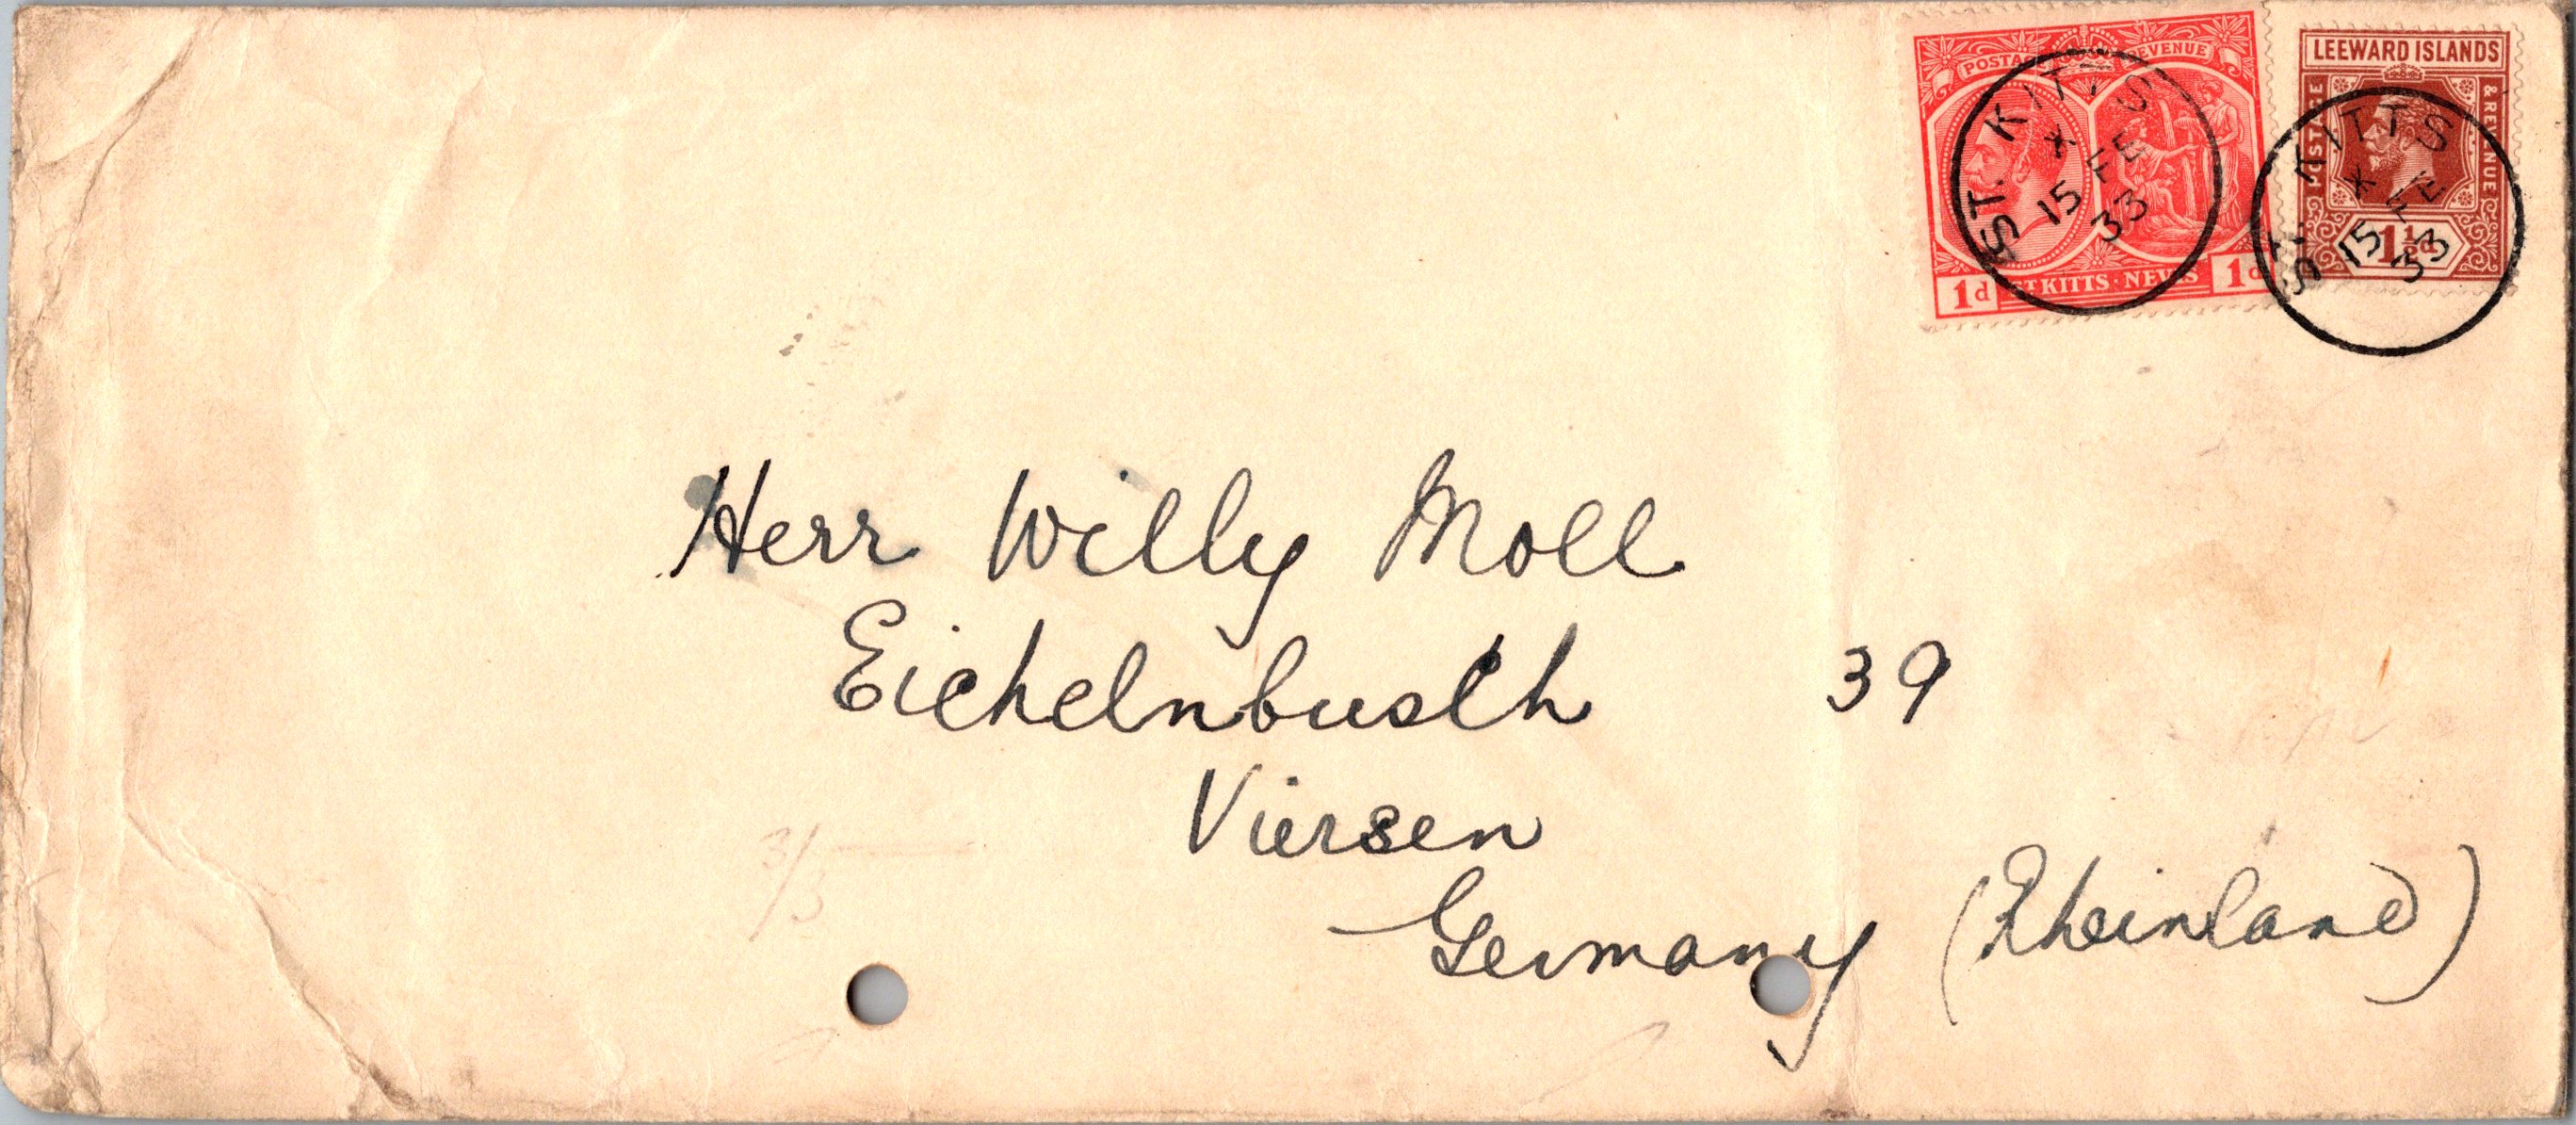 POSTAGE & REVENUE
1d ST KITTS · NEVIS 1d
LEEWARD ISLANDS
POSTAGE & REVENUE
1½d
ST. KITTS
X
15 FE
33
ST. KITTS
X
15 FE
33
Herr Willy Moll
Eichelnbusch 39
Viersen
Germany (Rheinland)
3/3